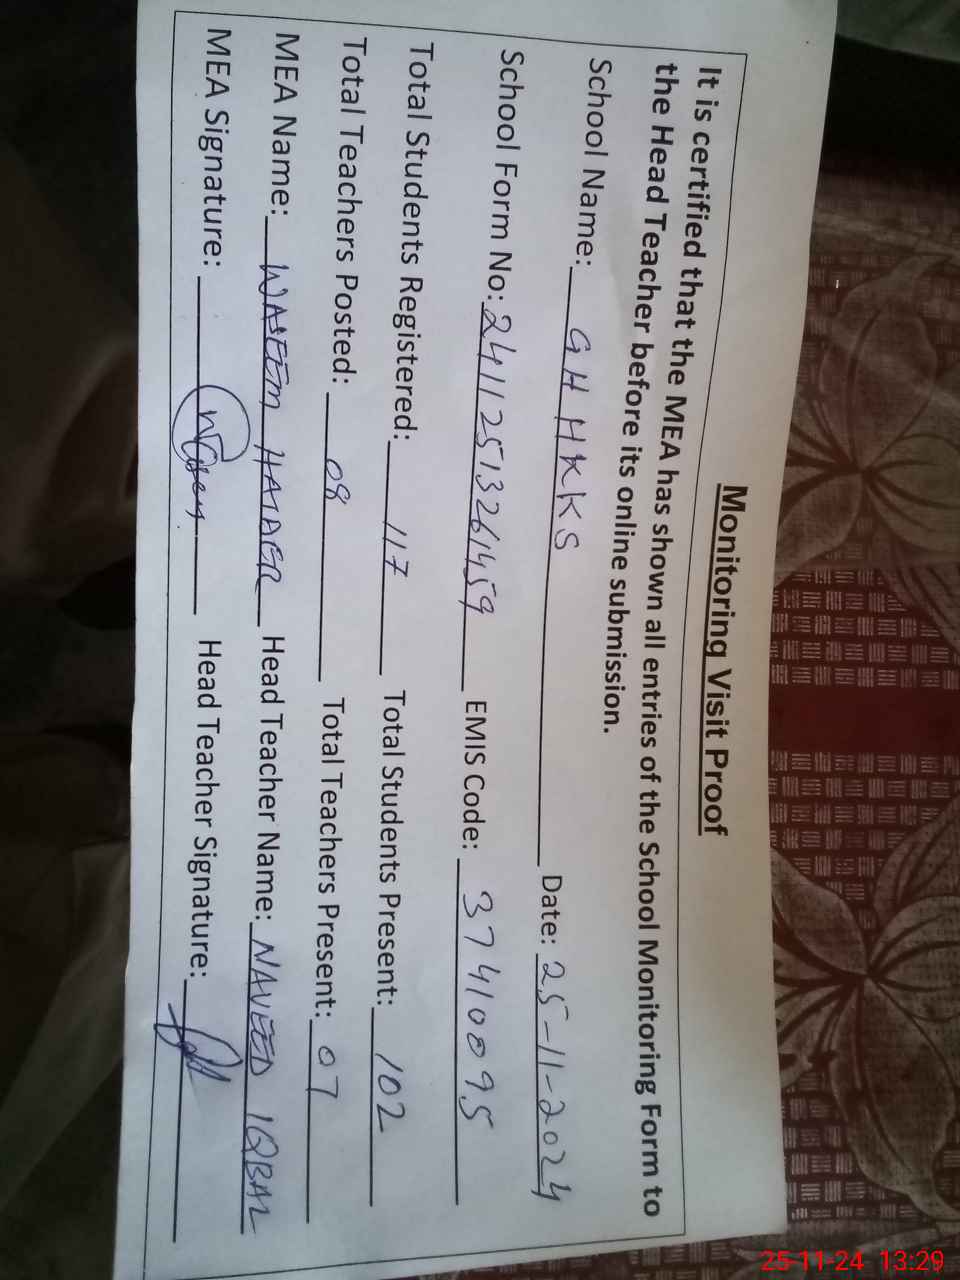 Monitoring Visit Proof
It is certified that the MEA has shown all entries of the School Monitoring Form to
the Head Teacher before its online submission.
School Name: GHHKKS Date: 25-11-2024
School Form No: 24112513261459 EMIS Code: 37410095
Total Students Registered: 117 Total Students Present: 102
Total Teachers Posted: 08 Total Teachers Present: 07
MEA Name: WASEEM HAIDER Head Teacher Name: NAVEED IQBAL
MEA Signature: Head Teacher Signature:
25-11-24 13:29